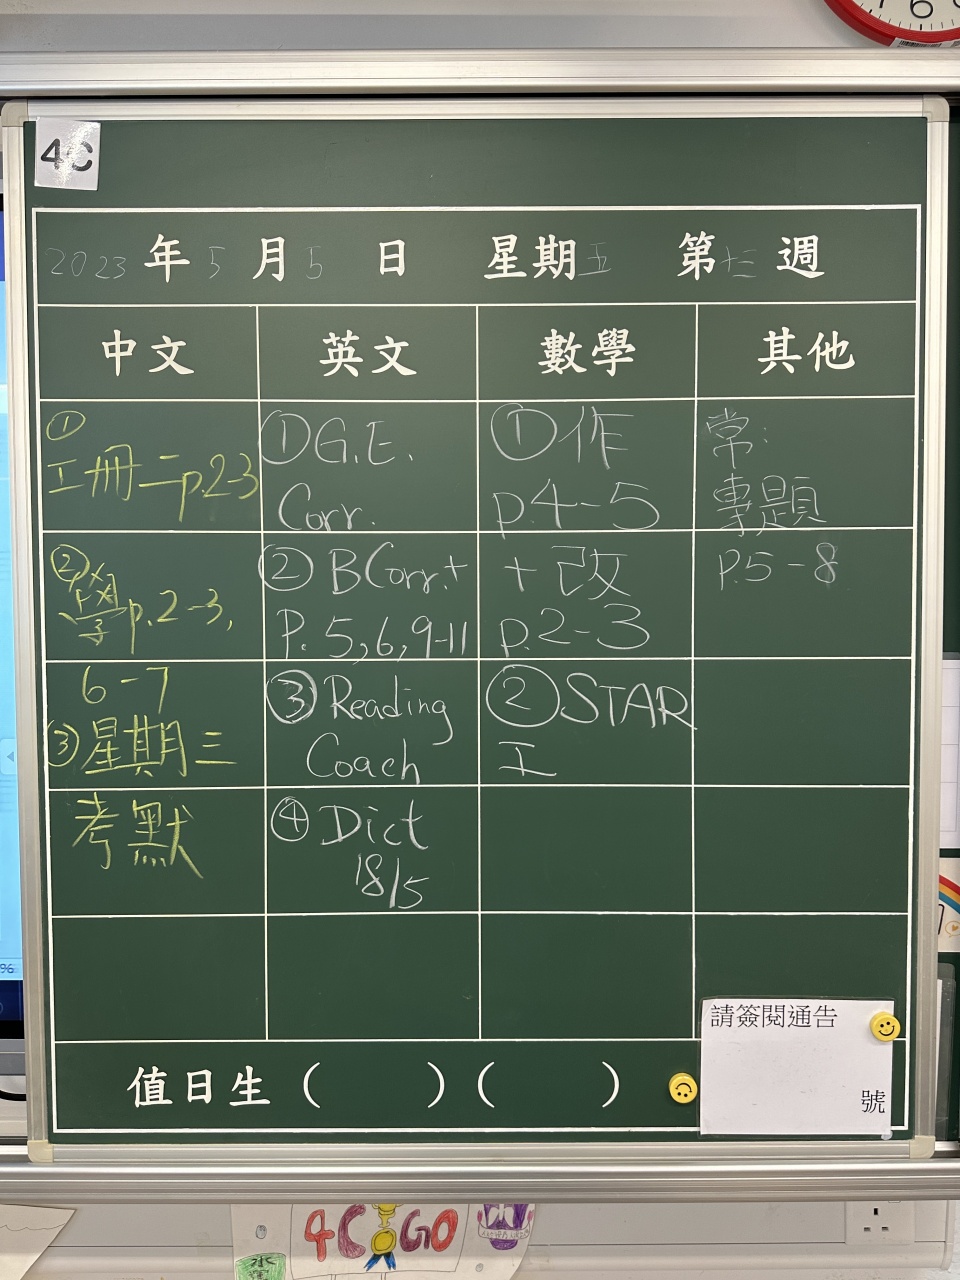 4C
2023 年 5 月 5 日 星期五 第 週
中文 英文 數學 其他
①
工冊二p.2-3
② p.2-3,
6-7
③星期三
考默
①G.E.
Corr.
②BCorr.+
P.5,6,9-11
③Reading
Coach
④Dict
18/5
①作
p.4-5
+改
p.2-3
②STAR
工
常:
專題
P.5-8
值日生( )( )
請簽閱通告
號
4C GO
6
96